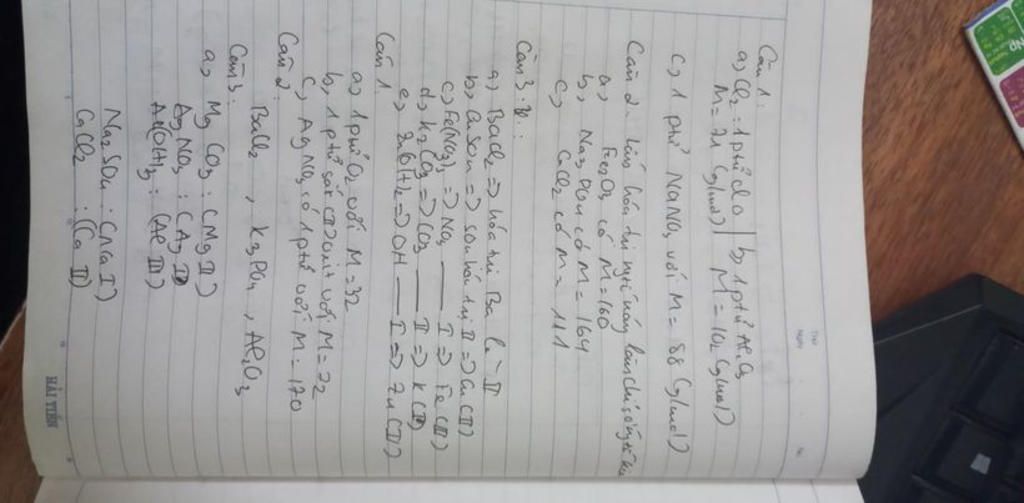 Câu 1:
a, Cl2: 1 phtử clo | b, 1 phtử Al2O3
M = 71 (g/mol) | M = 102 (g/mol)
c, 1 phtử NaNO3 với M = 88 (g/mol)
Câu 2:
a, Fe2O3 có M = 160
b, Na3PO4 có M = 164
c, CaCl2 có M = 111
Câu 3:
a, BaCl2 => hóa trị Ba là II
b, CuSO4 => SO4 hóa trị II => Cu (II)
c, Fe(NO3) => NO3 — I => Fe (II)
d, K2CO3 => CO3 — II => K (I)
e, Zn(OH)2 => OH — I => Zn (II)
Câu 1.
a, 1 phtử O2 với M = 32
b, 1 phtử sắt với M = 72
c, AgNO3 có 1 phtử với M = 170
Câu 2:
BaCl2, K3PO4, Al2O3
Câu 3:
a, MgCO3: (Mg II)
AgNO3: (Ag I)
Al(OH)3: (Al III)
Na2SO4: (Na I)
CaCl2: (Ca II)
Thứ
Ngày
No.
HẢI TIẾN